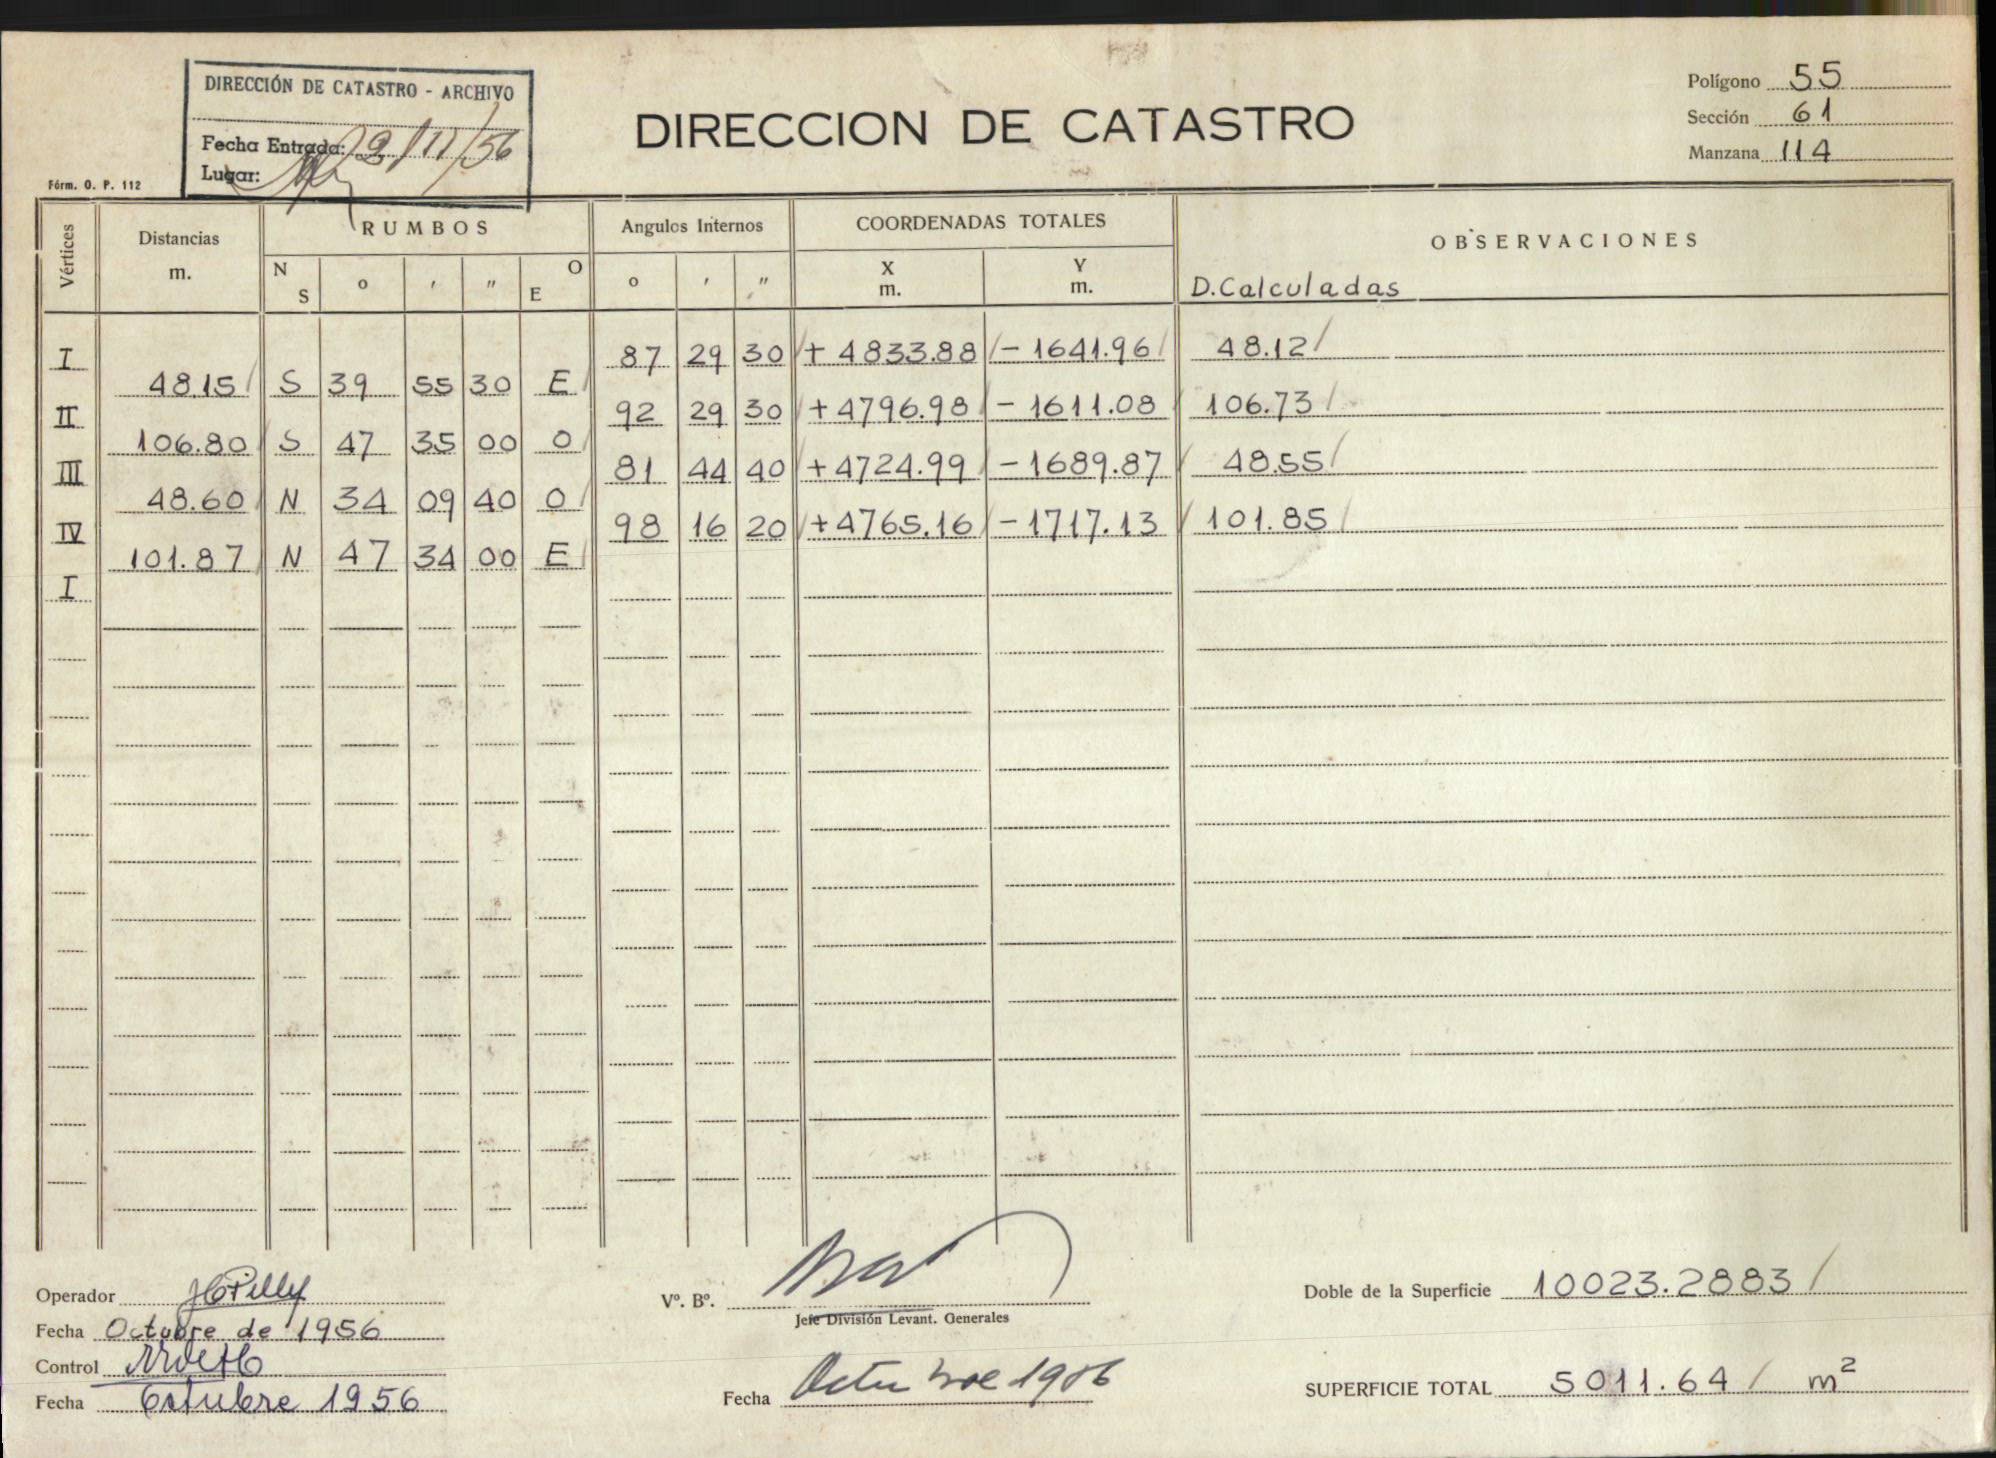 DIRECCIÓN DE CATASTRO - ARCHIVO
Fecha Entrada: 2/11/56
Lugar:
Fórm. O. P. 112
DIRECCION DE CATASTRO
Polígono 55
Sección 61
Manzana 114
Vértices Distancias m. RUMBOS Angulos Internos COORDENADAS TOTALES OBSERVACIONES
N S o ' " O E o ' " X m. Y m. D. Calculadas
I 87 29 30 + 4833.88 - 1641.96 48.12
48.15 S 39 55 30 E
II 92 29 30 + 4796.98 - 1611.08 106.73
106.80 S 47 35 00 O
III 81 44 40 + 4724.99 - 1689.87 48.55
48.60 N 34 09 40 O
IV 98 16 20 + 4765.16 - 1717.13 101.85
101.87 N 47 34 00 E
I
Operador
Fecha Octubre de 1956
Control
Fecha Octubre 1956
Vº. Bº.
Jefe División Levant. Generales
Fecha Octubre 1956
Doble de la Superficie 10023.2883
SUPERFICIE TOTAL 5011.64 m²